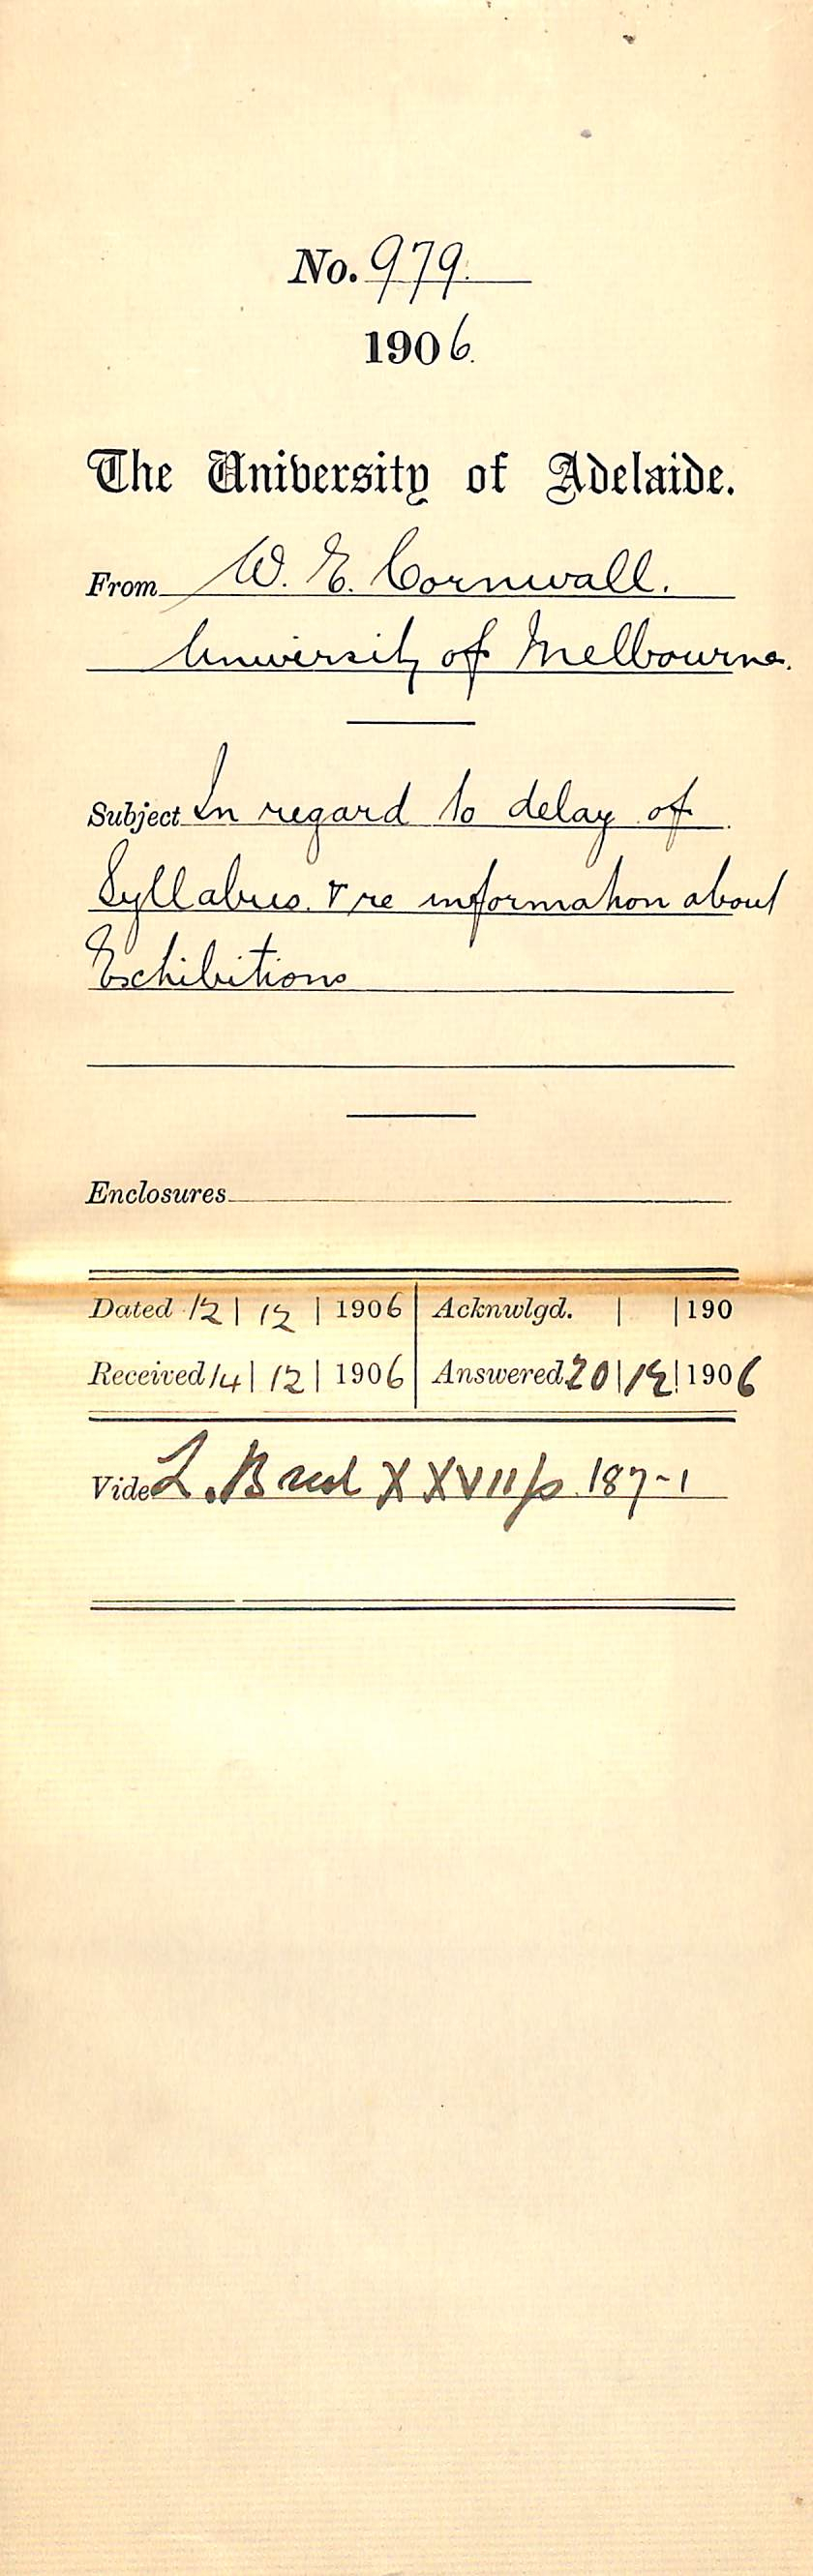 No. 979.
1906.
The University of Adelaide.
From W. E. Cornwall.
University of Melbourne.
Subject In regard to delay of
Syllabus. & re information about
Exhibitions
Enclosures
Dated 12 | 12 | 1906 Acknwlgd. | | 190
Received 14 | 12 | 1906 Answered 20 | 12 | 1906
Vide L. B XXVII p. 187-1